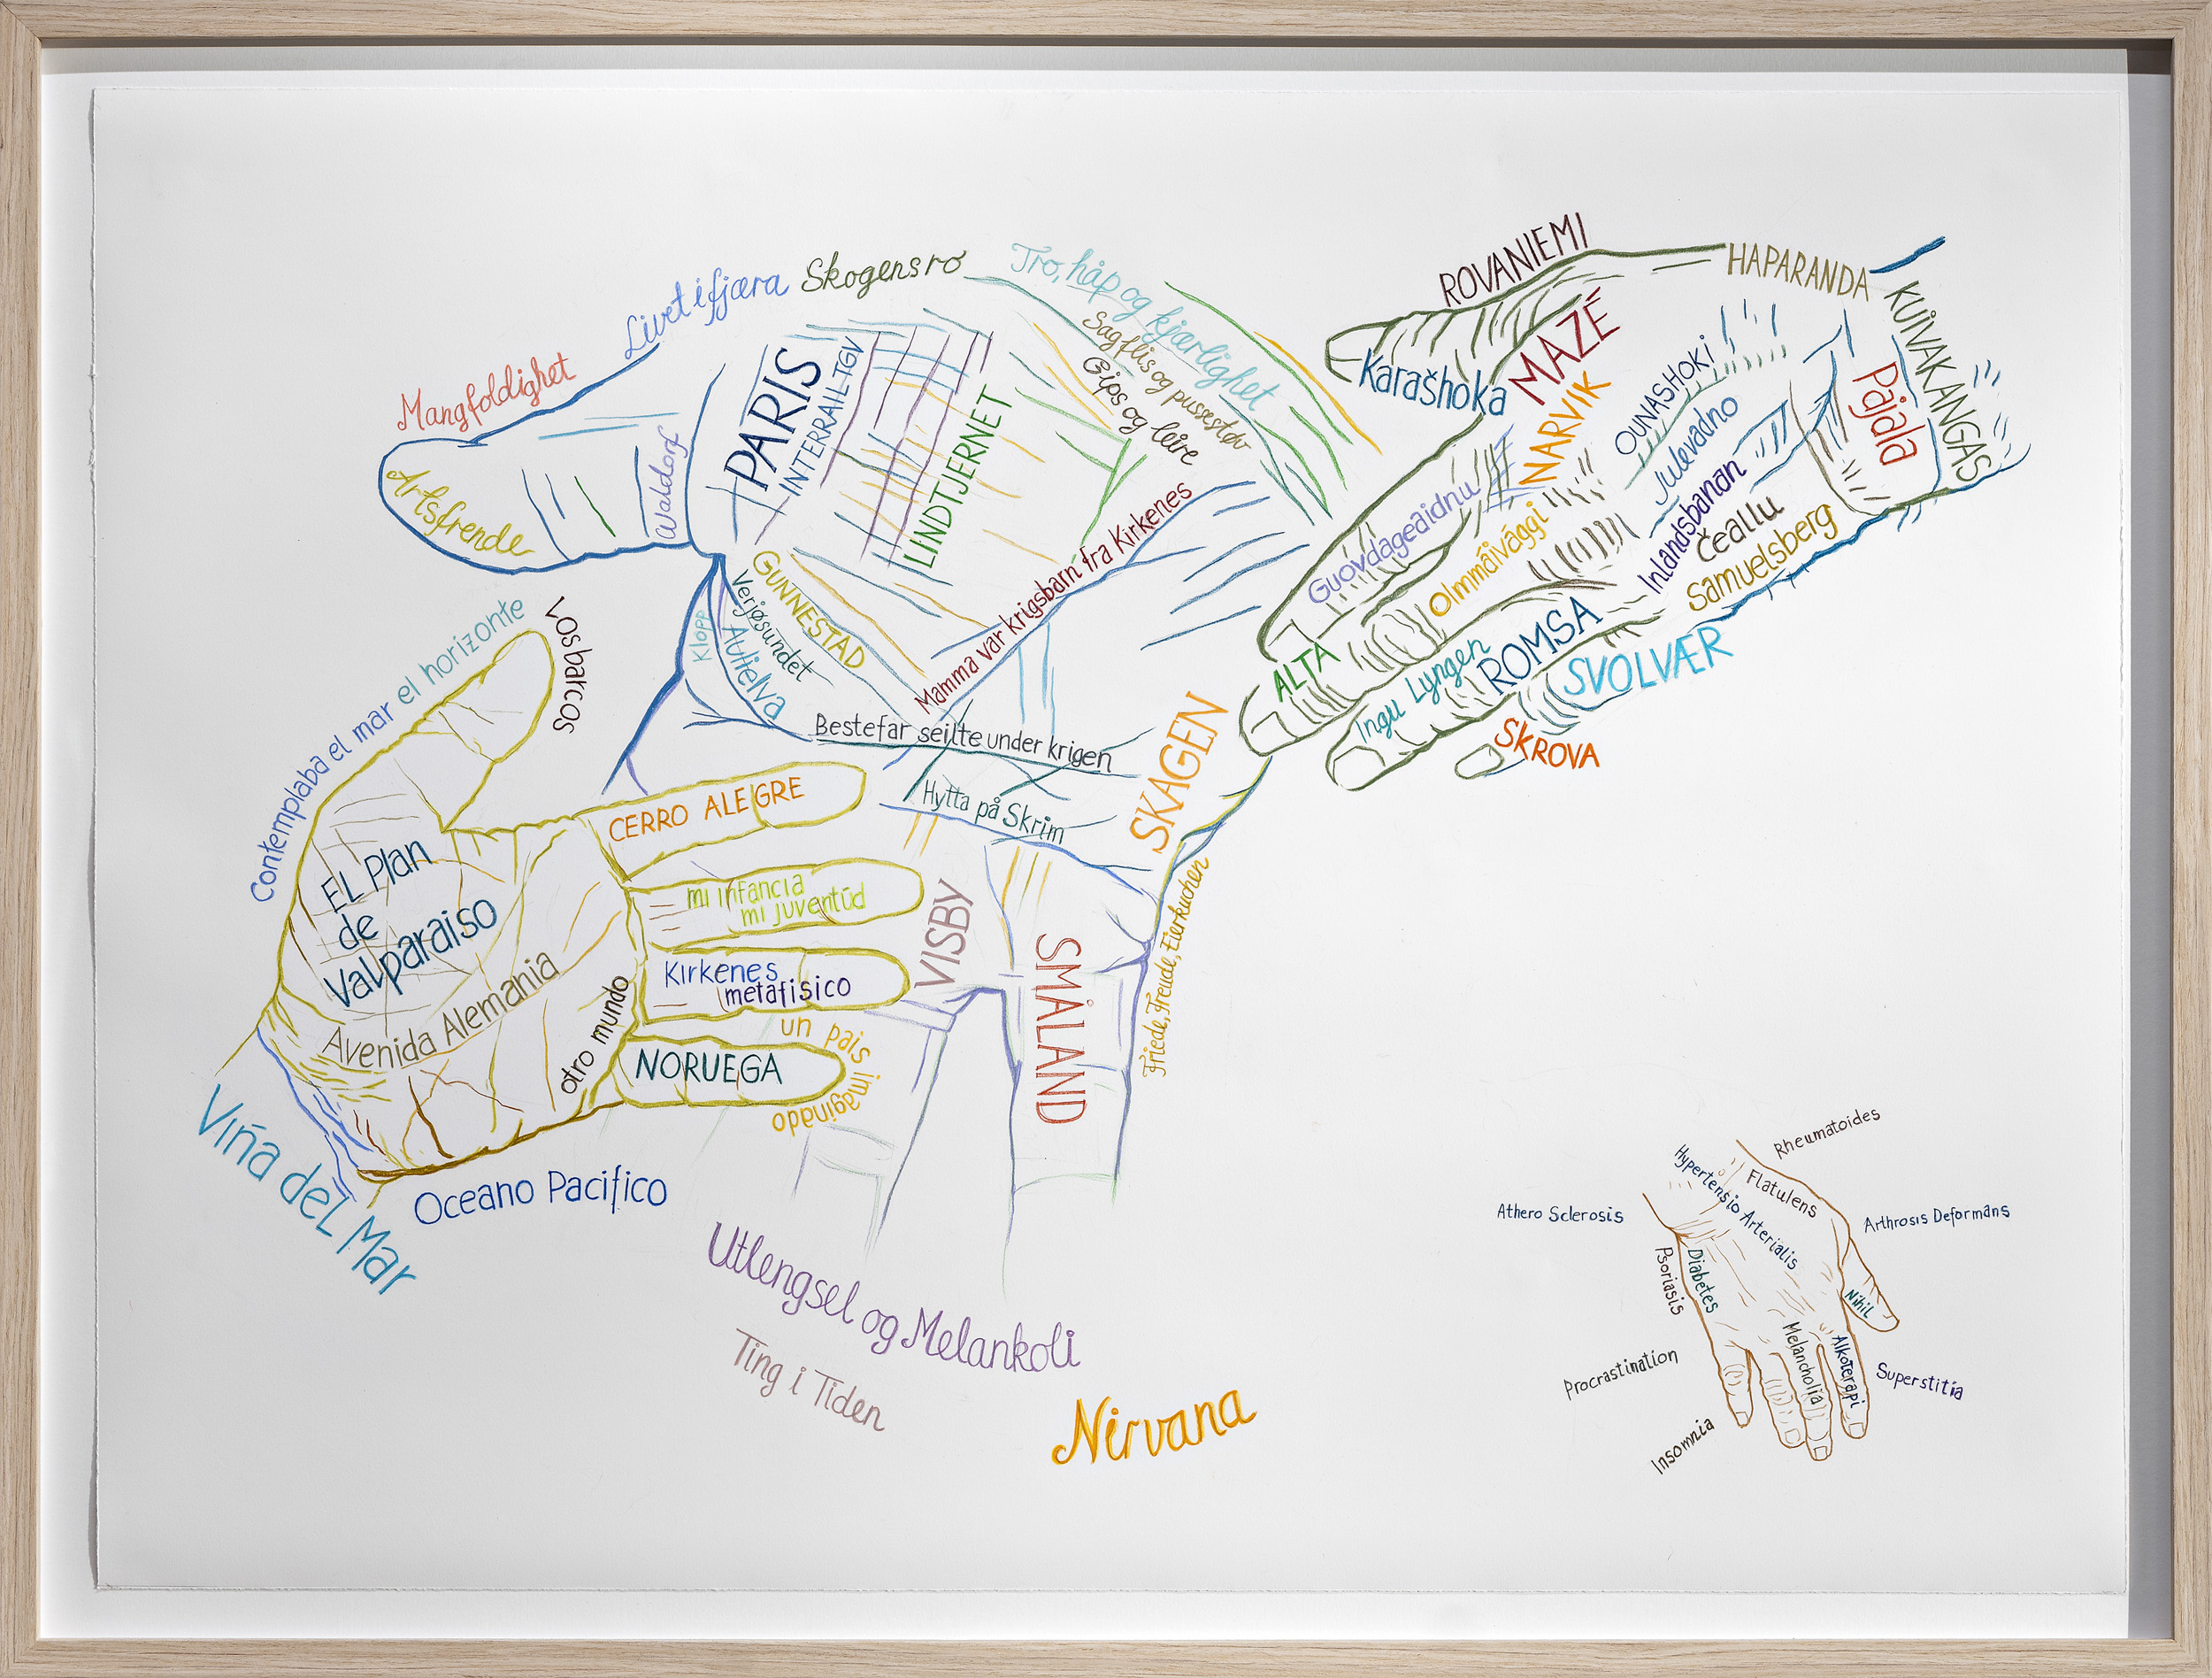 Mangfoldighet
Livet i fjæra
Skogens ro
Tro, håp og kjærlighet
Sagflis og pussestøv
Gips og leire
Artsfrende
Waldorf
PARIS
INTERRAIL-TGV
LINDTJERNET
Mamma var krigsbarn fra Kirkenes
GUNNESTAD
Verjøsundet
Klopp
Aulielva
Bestefar seilte under krigen
Hytta på Skrim
SKAGEN
VISBY
SMÅLAND
Friede, Freude, Eierkuchen
ROVANIEMI
HAPARANDA
KUIVAKANGAS
Karašhoka
MAZE
NARVIK
OUNASHOKI
Julevadno
Pajala
Guovdageaidnu
Olmmáivággi
Inlandsbanan
Čeallu
Samuelsberg
ALTA
Ingu Lyngen
ROMSA
SVOLVÆR
SKROVA
Contemplaba el mar el horizonte
los barcos
CERRO ALEGRE
mi infancia
mi juventúd
Kirkenes
metafisico
un pais imaginado
NORUEGA
EL Plan
de
Valparaiso
Avenida Alemania
otro mundo
Viña del Mar
Oceano Pacifico
Utlengsel og Melankoli
Ting i Tiden
Nirvana
Rheumatoides
Hypertensio Arterialis
Flatulens
Athero Sclerosis
Arthrosis Deformans
Psoriasis
Diabetes
Nihil
Melancholia
Alkoterapi
Procrastination
Superstitia
Insomnia